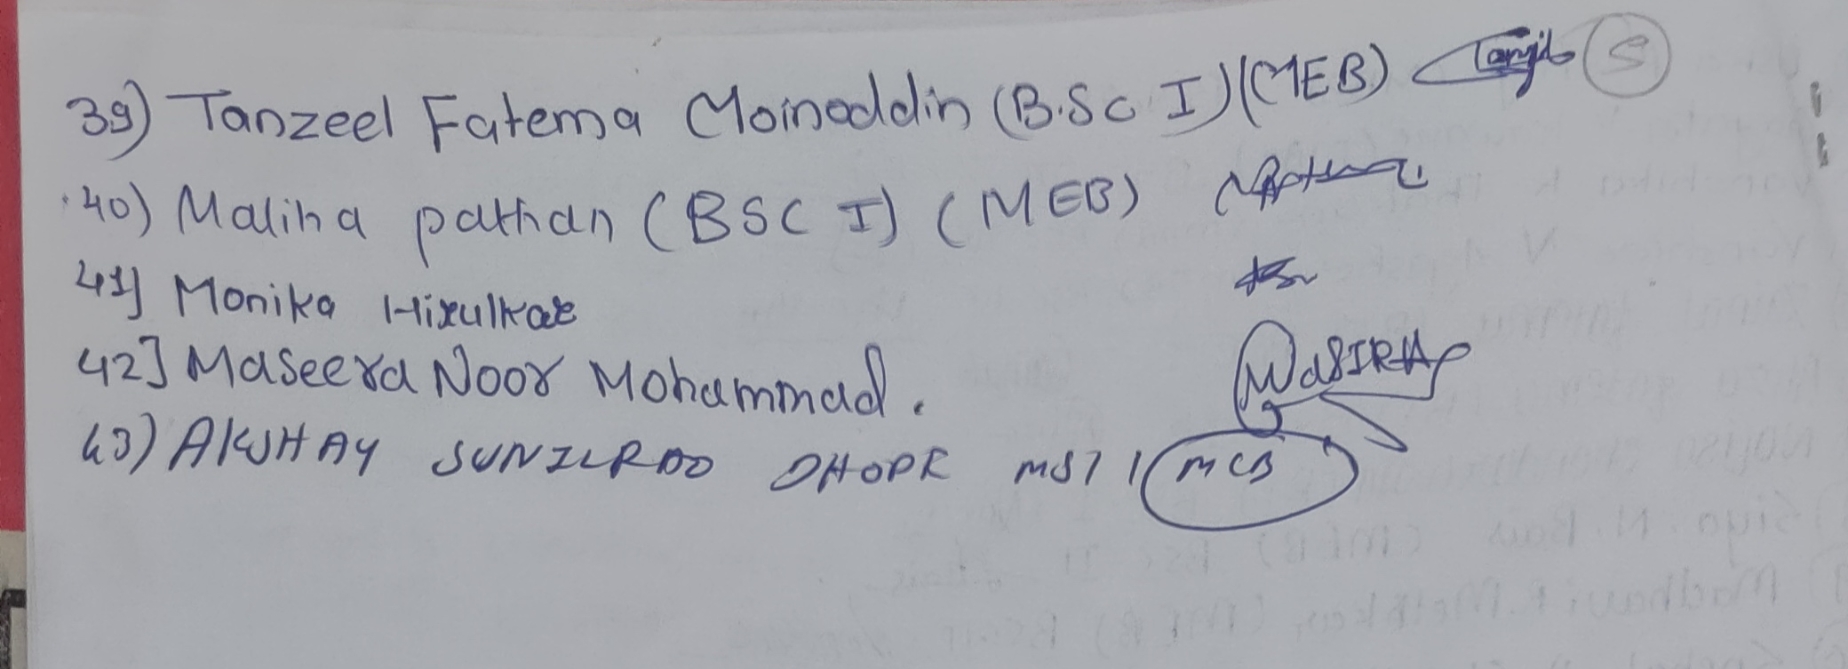 39) Tanzeel Fatema Moinoddin (B.Sc I) (MEB) S
40) Maliha pathan (BSC I) (MEB)
41] Monika Hirulkar
42] Maseera Noor Mohammad.
43) AKSHAY SUNILRAO DHOPR